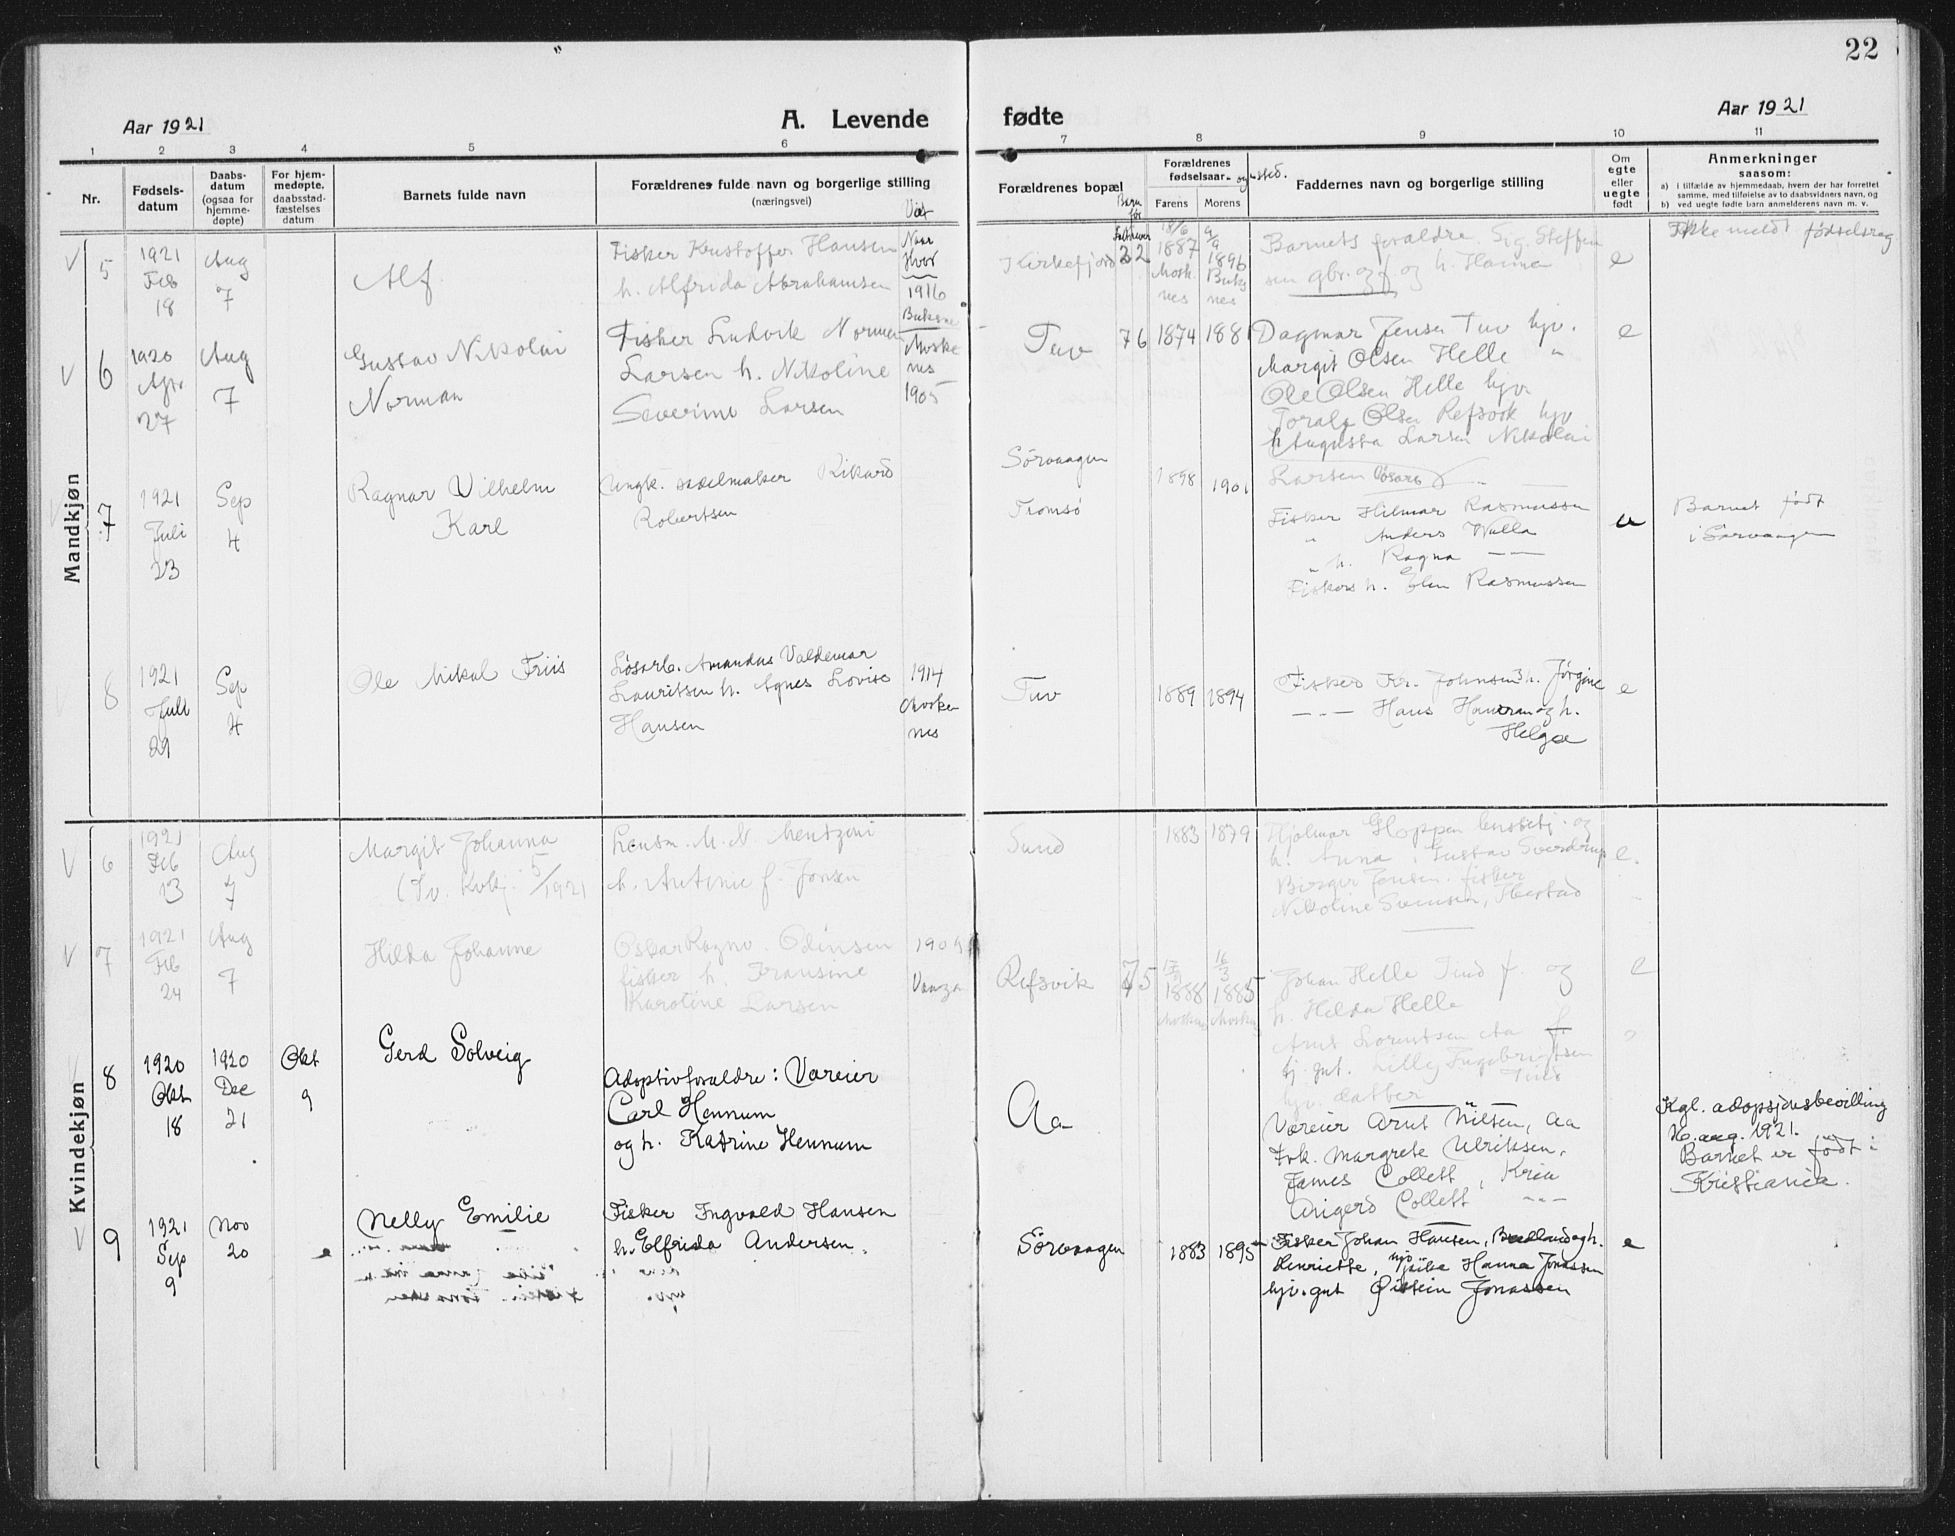 22
Aar 1921
A. Levende
fødte
Aar 1921
1 2 3 4 5 6 7 8 9 10 11
Nr.
Fødsels-
datum
Daabs-
datum
(ogsaa for
hjemme-
døpte)
For hjem-
medøpte,
daabsstad-
fæstelses
datum
Barnets fulde navn
Forældrenes fulde navn og borgerlige stilling
(næringsvei)
Viet
Naar
Hvor
Forældrenes bopæl
Barn
før
Forældrenes
fødselsaar- og sted.
Farens Morens
Faddernes navn og borgerlige stilling
Om
egte
eller
uegte
født
Anmerkninger
saasom:
a) i tilfælde av hjemmedaab, hvem der har forrettet
samme, med tilføielse av to daabsvidners navn, og
b) ved uegte fødte barn anmelderens navn m. v.
Mandkjøn
5
1921
Feb
18
Aug
7
Alf
Fisker Kristoffer Hansen
h. Alfrida Abrahamsen
1916
Buksnes
Kirkefjord 22
18/6
1887
Mosk
nes
9/9
1896
Buks
nes
Barnets forældre. Sig. Steffen
sen gbr. og f. og h. Hanna
e
Ikke meldt fødselsreg
6
1920
Apr
27
Aug
7
Gustav Nikolai
Norman
Fisker Ludvik Norman
Larsen h. Nikoline
Severine Larsen
Moske
nes
1905
Tuv 76 1874 1881
Dagmar Jensen Tuv hjv.
Margit Olsen Helle "
Ole Olsen Helle hjv
Toralf Olsen Refsvik hjv
h Augusta Larsen Nikolai
Larsen
e
7
1921
Juli
23
Sep
4
Ragnar Vilhelm
Karl
Ungk. sadelmaker Rikard
Robertsen
Sörvaagen
Tromsø
1898 1901
Fisker Hilmar Rasmussen
" Anders Walla
" h. Ragna — —
Fiskers h. Elen Rasmussen
u
Barnet født
i Sørvaagen
8
1921
Juli
29
Sep
4
Ole Mikal Friis
Løsarb. Amandus Valdemar
Lauritsen h. Agnes Lovise
Hansen
1914
Mosken
nes
Tuv 1889 1894
Fisker Kr. Johnsen h. Jørgine
— " — Hans Hansen og h.
Helga
e
Kvindekjøn
6
1921
Feb
13
Aug
7
Margit Johanna
5/1921
Lensm. M. N. Mentzoni
h. Antonie f. Jensen
Sund 1883 1879
Hjalmar Hoppen og
h. Anna. Gustav Sverdrup
Birger Jensen. fisker
Nikoline Svensen, Ibestad
e.
7
1921
Feb
24
Aug
7
Hilda Johanne
Oskar Ragnv. Odinsen
fisker h. Fransine
Karoline Larsen
Vaagan
Refsvik 75
1888
Mosken
16/3
1885
Mosken
Johan Helle Tind f. og
h. Hilda Helle
Arnt Lorentsen Aa f.
hj. gut. Lilly Ingebrigtsen
Tind
hjv. datter
e
8
1920
Okt
18
1920
Dec
21
Okt
9
Gerd Solveig
Adoptivforældre: Væreier
Carl Hennum
og h. Katrine Hennum
Aa
Væreier Arnt Nilsen, Aa
Frk. Margrete Ulriksen,
James Collett, Kria
Angerd Collett — " —
Kgl. adopsjonsbevilling
16. aug. 1921.
Barnet er født i
Kristiania.
9
1921
Sep
9
Nov
20
Nelly Emilie
Fisker Ingvald Hansen
h. Elfrida Andersen.
Sörvaagen 1883 1895
Fisker Johan Hansen, og h.
Henriette, Hanna Jonassen
hjv. gut Øistein Jonassen
e